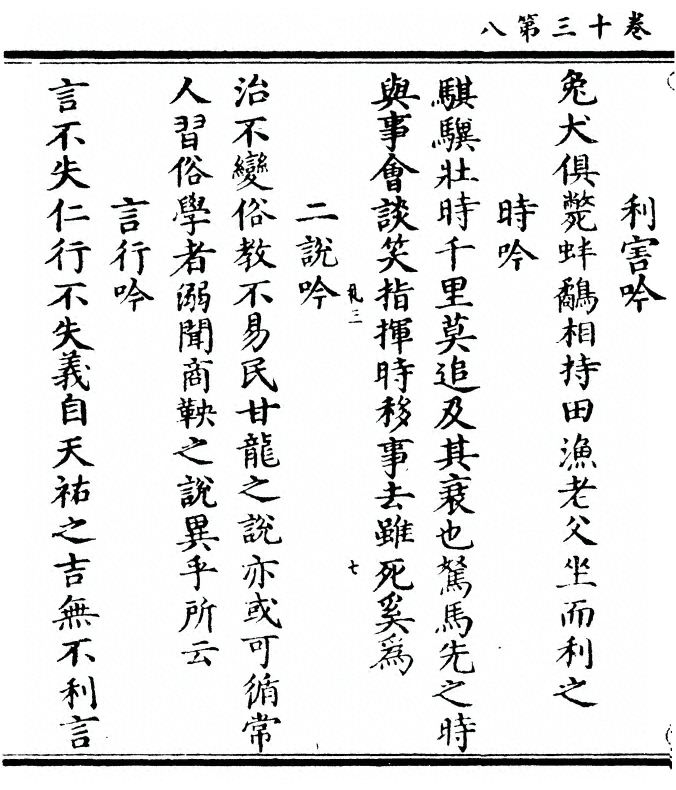 卷十三第八
利害吟
兔犬俱斃蚌鷸相持田漁老父坐而利之
時吟
騏驥壯時千里莫追及其衰也駑馬先之時
與事會談笑指揮時移事去雖死奚爲
禮三
七
二說吟
治不變俗教不易民甘龍之說亦或可循常
人習俗學者溺聞商鞅之說異乎所云
言行吟
言不失仁行不失義自天祐之吉無不利言